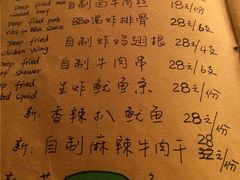 自制 牛肉丝 18元/份
Deep fried pork
ribs in BBQ Sauce BBQ 酱炸排骨 28元/6支
Deep fried
Chicken Wing 自制炸鸡翅根 28元/4支
Deep fried
beef skewer 自制牛肉串 28元/6支
fried
Squid 生炸鱿鱼条 28元/份
新: 香辣扒鱿鱼 28元/份
新: 自制麻辣牛肉干 28元/份